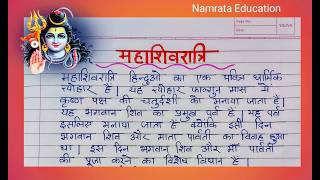 Namrata Education
महाशिवरात्रि
महाशिवरात्रि हिन्दुओं का एक पवित्र धार्मिक
त्योहार है। यह त्योहार फाल्गुन मास में
कृष्ण पक्ष की चतुर्दशी को मनाया जाता है।
यह भगवान शिव का प्रमुख पर्व है। यह पर्व
इसलिए मनाया जाता है क्योंकि इसी दिन
भगवान शिव और माता पार्वती का विवाह हुआ
था। इस दिन भगवान शिव और माँ पार्वती
की पूजा करने का विशेष विधान है।